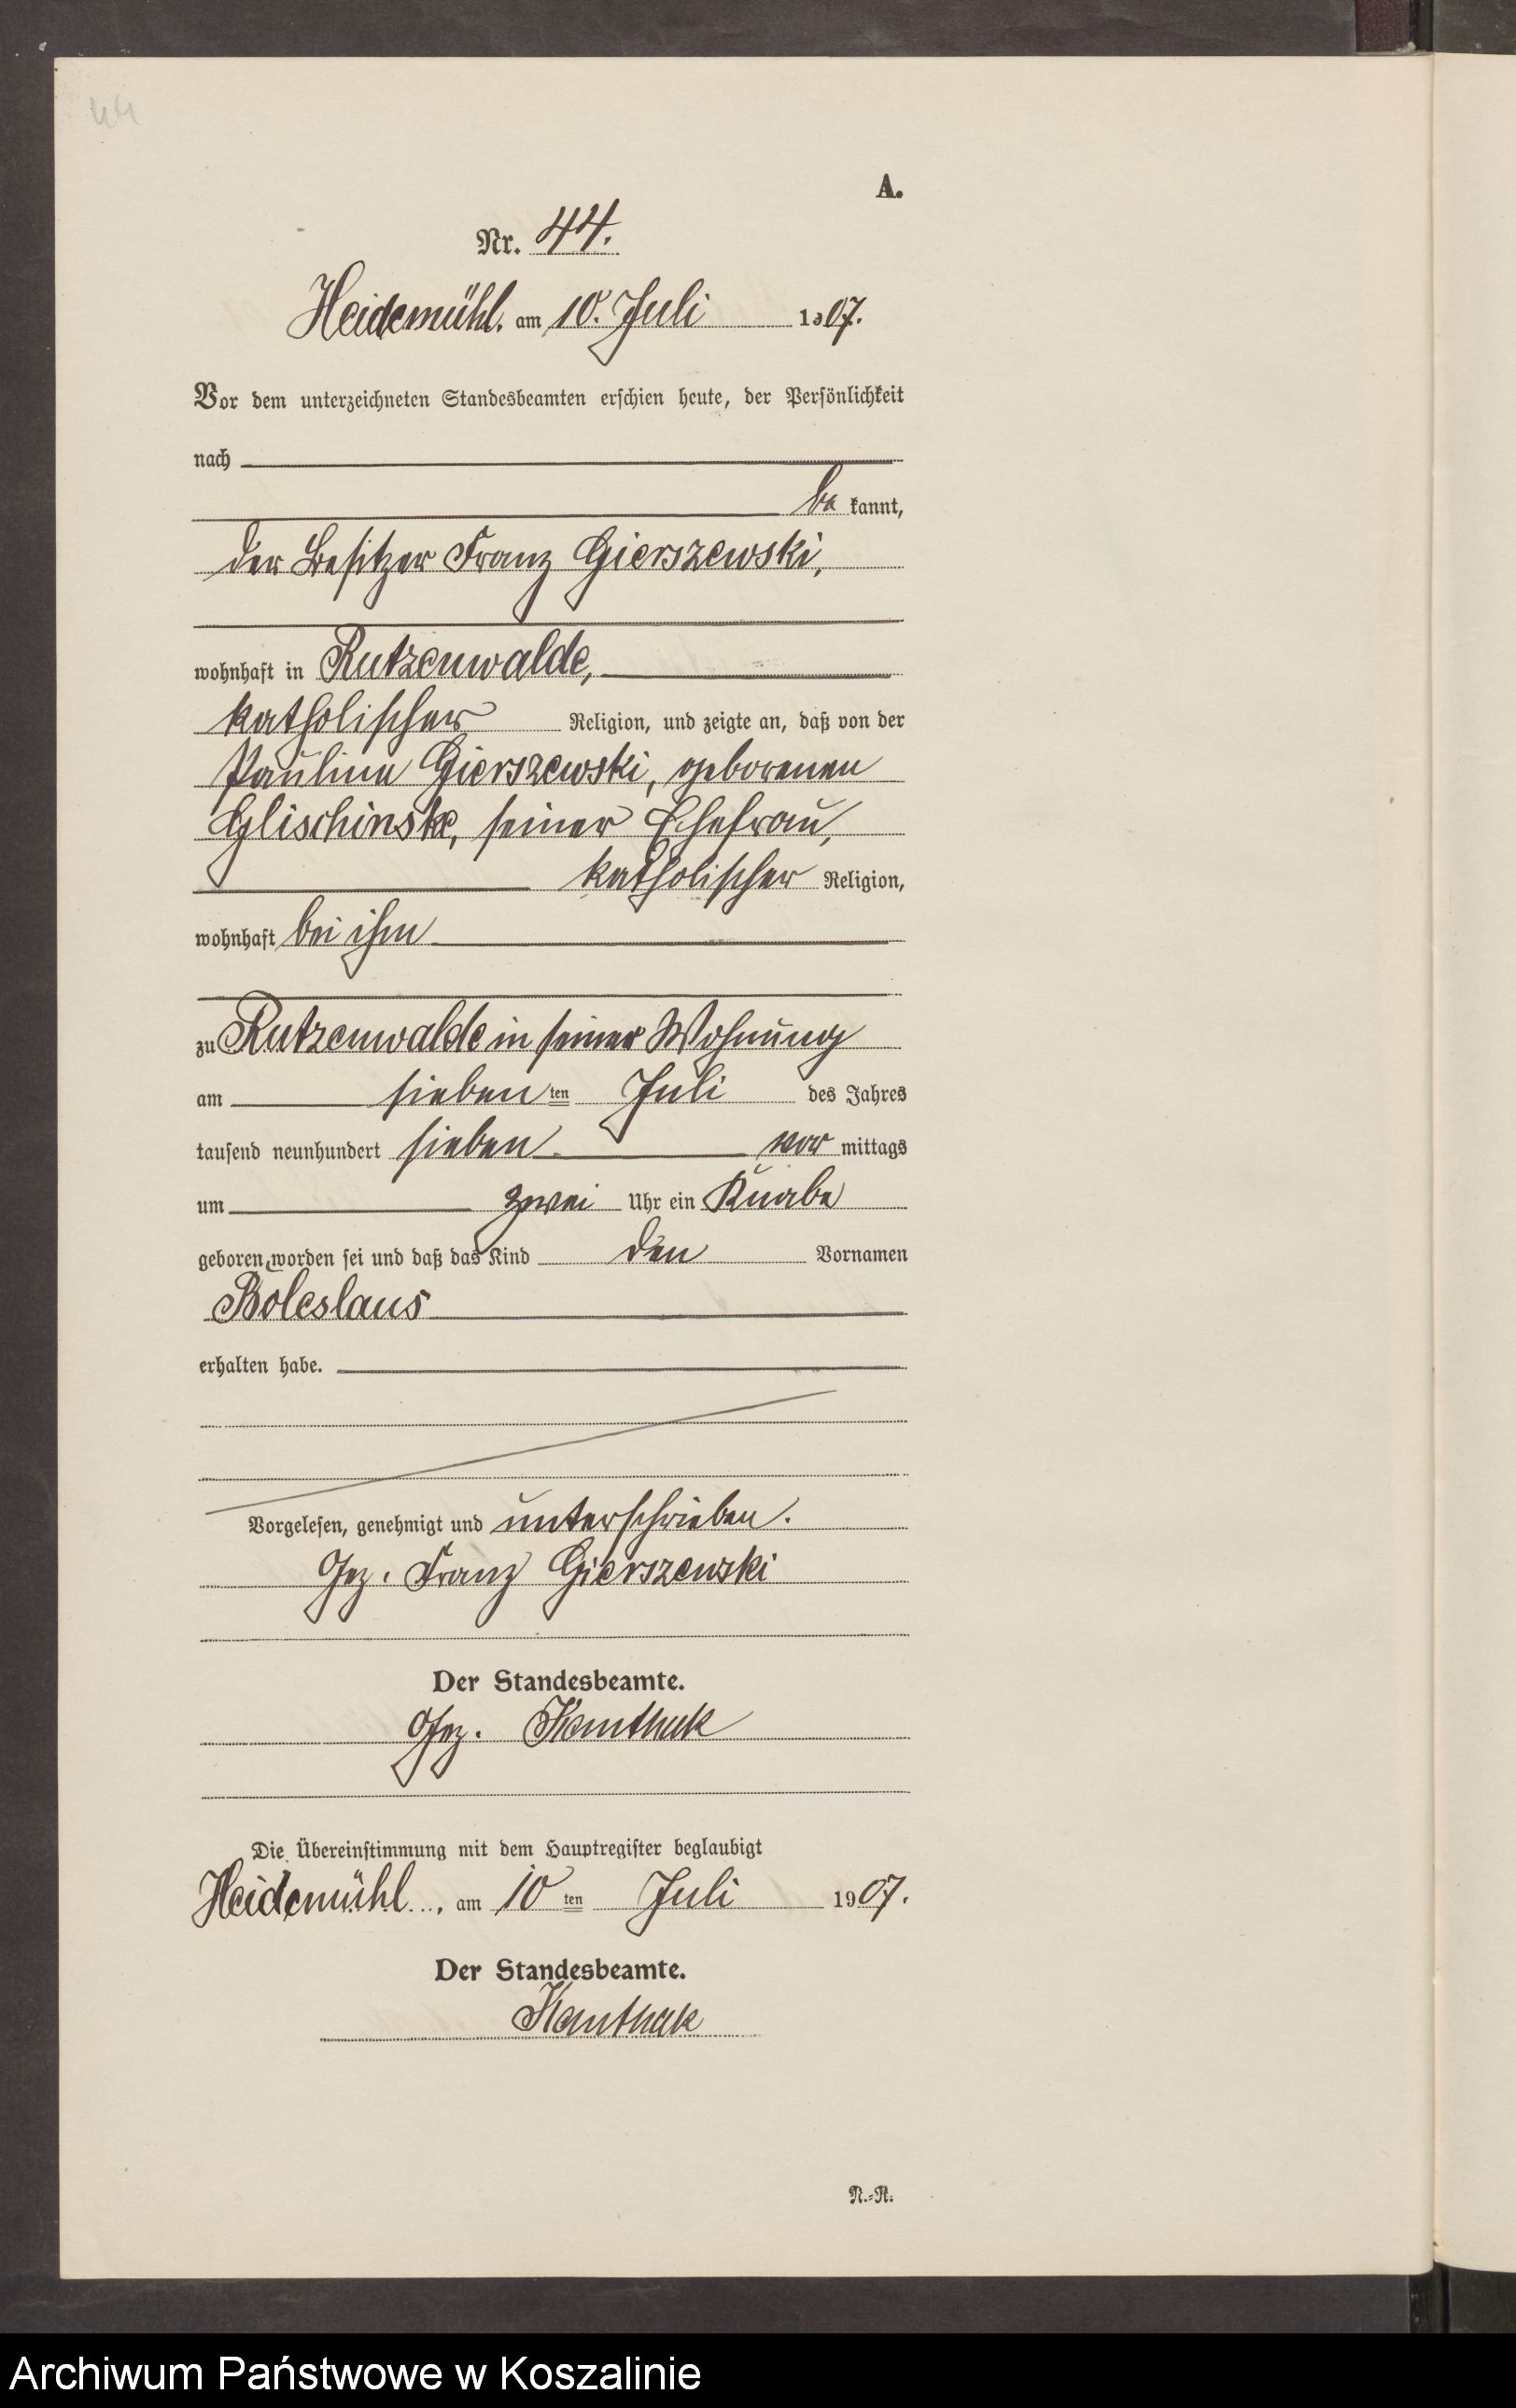 44
A.
Nr. 44.
Heidemühl. am 10. Juli 1907.
Vor dem unterzeichneten Standesbeamten erschien heute, der Persönlichkeit
nach
be kannt,
der Besitzer Franz Gierszewski,
wohnhaft in Rutzenwalde,
katholischer Religion, und zeigte an, daß von der
Pauline Gierszewski, geborenen
Glischinske, seiner Ehefrau,
katholischer Religion,
wohnhaft bei ihm
zu Rutzenwalde in seiner Wohnung
am sieben ten Juli des Jahres
tausend neunhundert sieben vor mittags
um zwei Uhr ein Knabe
geboren worden sei und daß das Kind den Vornamen
Boleslaus
erhalten habe.
Vorgelesen, genehmigt und unterschrieben.
Gez. Franz Gierszewski
Der Standesbeamte.
Gez. Kanthak
Die Übereinstimmung mit dem Hauptregister beglaubigt
Heidemühl, am 10 ten Juli 1907.
Der Standesbeamte.
Kanthak
N.-R.
Archiwum Państwowe w Koszalinie